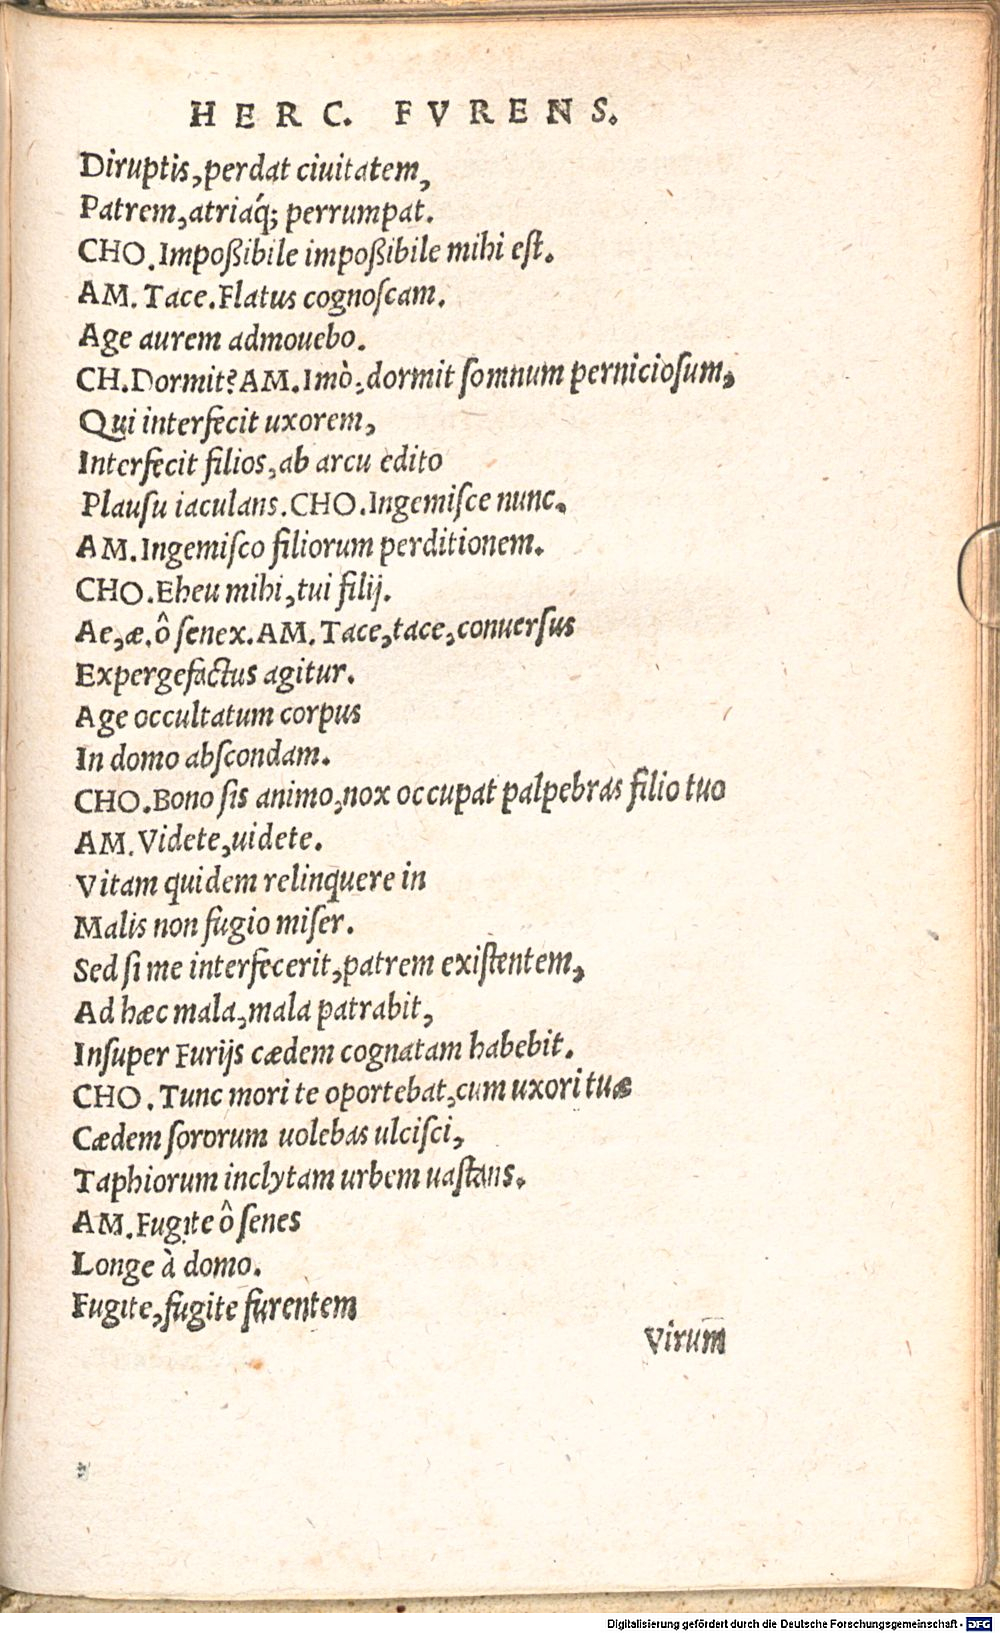 HERC. FVRENS.
Diruptis, perdat ciuitatem,
Patrem, atriaq́; perrumpat.
CHO. Impoßibile impoßibile mihi eſt.
AM. Tace. Flatus cognoſcam.
Age aurem admouebo.
CH. Dormit? AM. Imò: dormit ſomnum pernicioſum,
Qui interfecit uxorem,
Interfecit filios, ab arcu edito
Plauſu iaculans. CHO. Ingemiſce nunc.
AM. Ingemiſco filiorum perditionem.
CHO. Eheu mihi, tui filij.
Ae, æ. ô ſenex. AM. Tace, tace, conuerſus
Expergefactus agitur.
Age occultatum corpus
In domo abſcondam.
CHO. Bono ſis animo, nox occupat palpebras filio tuo
AM. Videte, uidete.
Vitam quidem relinquere in
Malis non fugio miſer.
Sed ſi me interfecerit, patrem exiſtentem,
Ad hæc mala, mala patrabit,
Inſuper Furijs cædem cognatam habebit.
CHO. Tunc mori te oportebat, cum uxori tuæ
Cædem ſororum uolebas ulciſci,
Taphiorum inclytam urbem uaſtans.
AM. Fugite ô ſenes
Longe à domo.
Fugite, fugite furentem
Virum
Digitalisierung gefördert durch die Deutsche Forschungsgemeinschaft - DFG